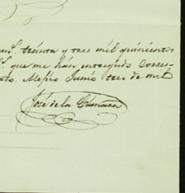 treinta y tres mil quinientos
que me han entregado
Mejico Junio tres de mil
José de la